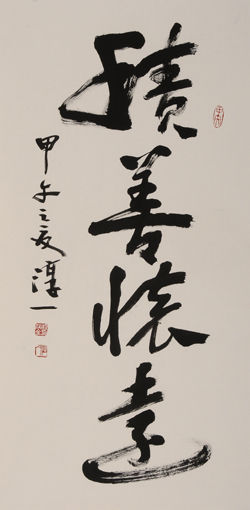 積善懷遠
甲午之夏淳一